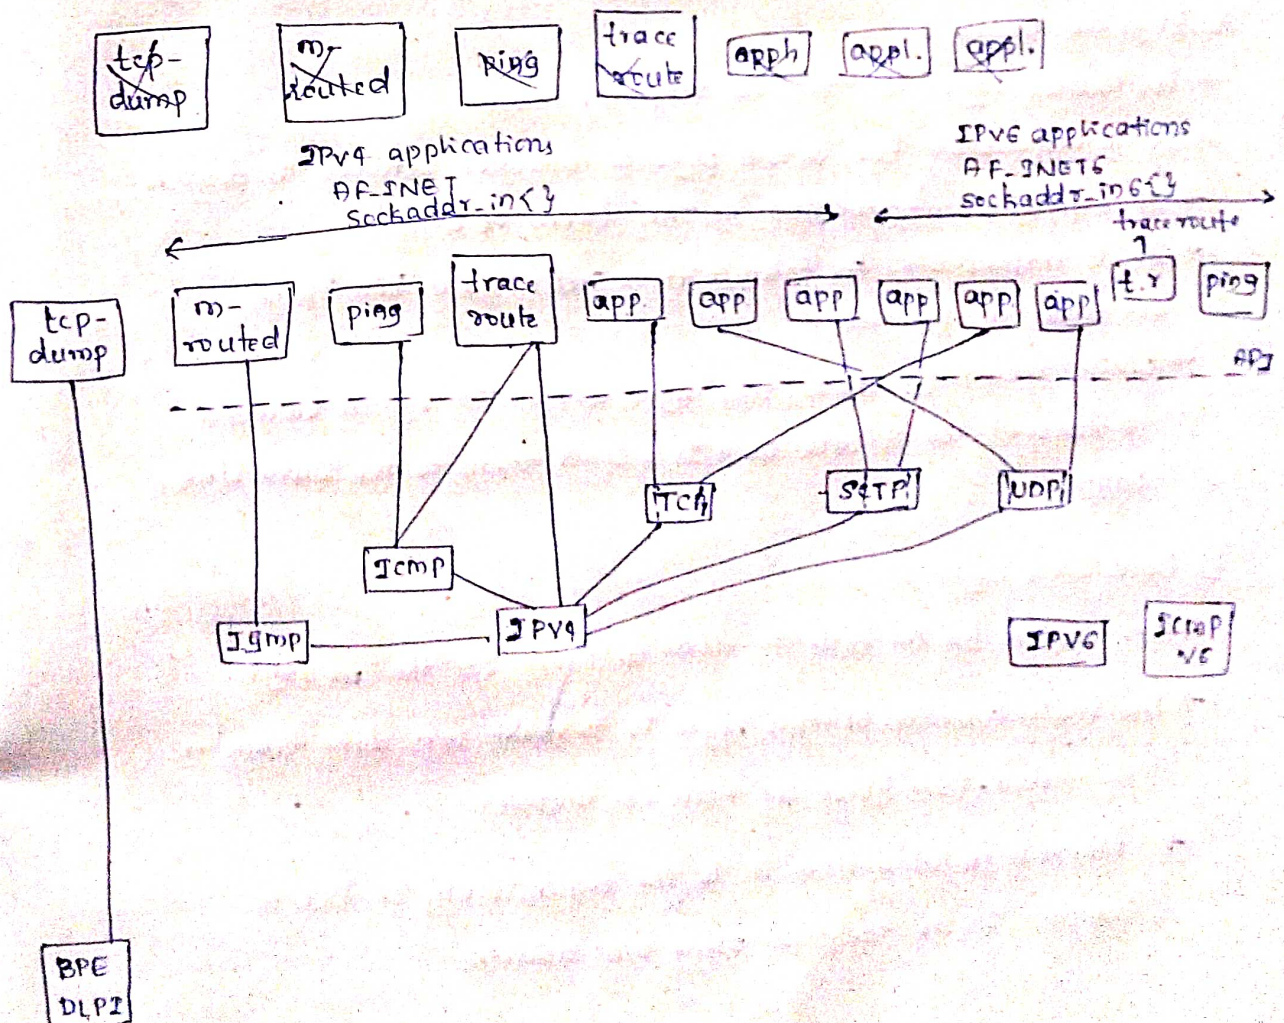 tcp-
dump
m-
routed
ping
trace
route
appl.
appl.
IPV4 applications
AF_INET
Sockaddr_in{}
IPV6 applications
AF_INET6
sockaddr_in6{}
traceroute
tcp-
dump
m-
routed
ping
trace
route
app.
app
app
app
app
app
t.r
ping
API
TCP
SCTP
UDP
ICMP
IGMP
IPV4
IPV6
ICMP
V6
BPE
DLPI